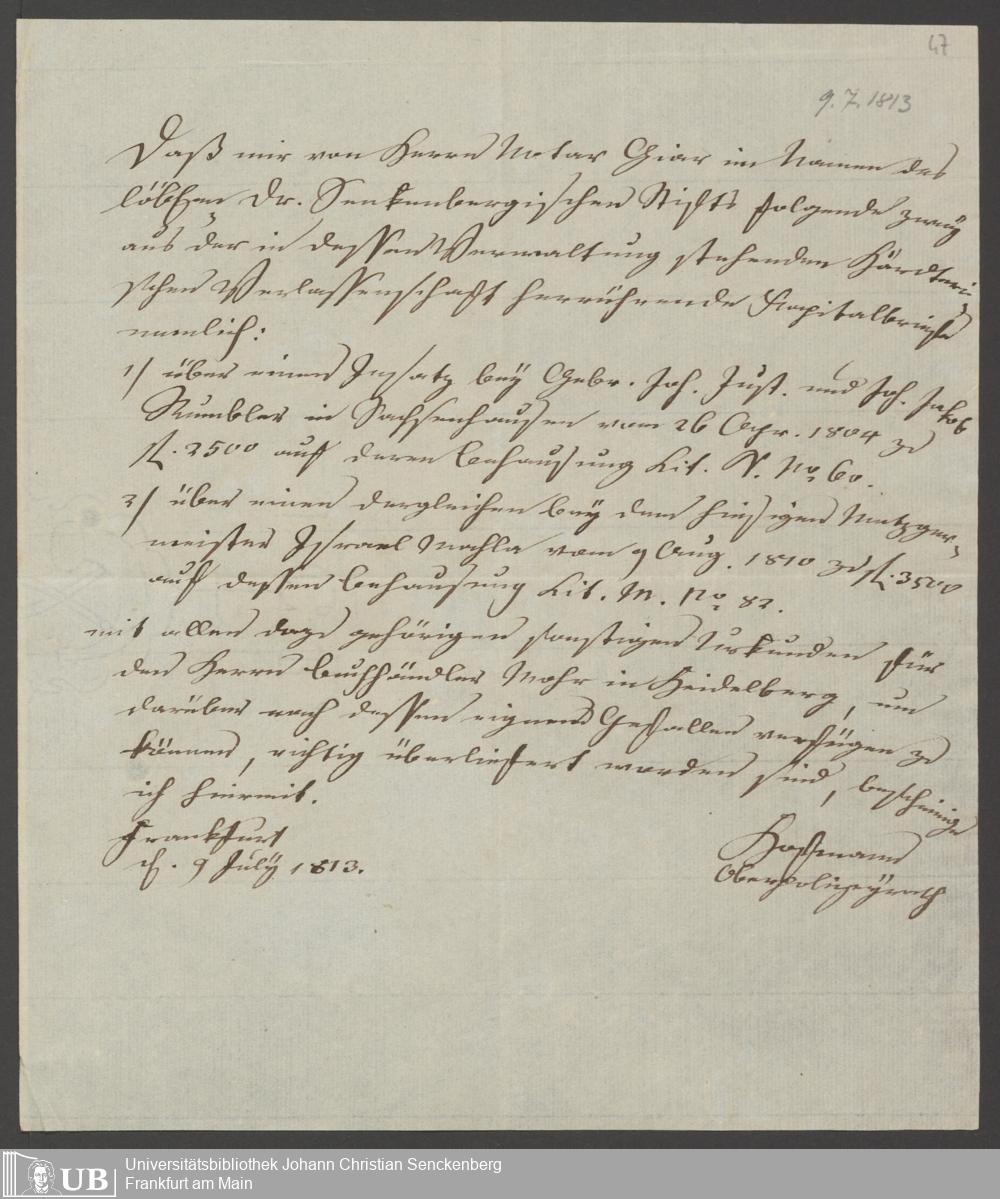 47
9.7.1813
Daß mir von Herrn Notar Giar im Namen des
löbln Dr. Senkenbergischen Stifts folgende zwey
aus der in dessen Verwaltung stehenden
schen Verlassenschaft herrührende Kapitalbriefe
nemlich:
1/ über einen Insatz bey Gebr. Joh. Just. und Joh. Jakob
Rumbler in Sachsenhausen vom 26 Apr. 1804 zu
fl. 2500 auf deren Behausung Lit. No 60.
2/ über einen dergleichen bey dem hiesigen Metzger-
meister Israel Mahla vom 9 Aug. 1810 zu fl. 3500
auf dessen Behausung Lit. M. No 82.
mit allen dazu gehörigen sonstigen Urkunden für
den Herrn Buchhändler Mohr in Heidelberg, um
darüber nach dessen eignem Gefallen verfügen zu
können, richtig überliefert worden sind, bescheinige
ich hiermit.
Frankfurt
d. 9 July 1813.
Hoffmann
Oberpolizeyrath
UB
Universitätsbibliothek Johann Christian Senckenberg
Frankfurt am Main